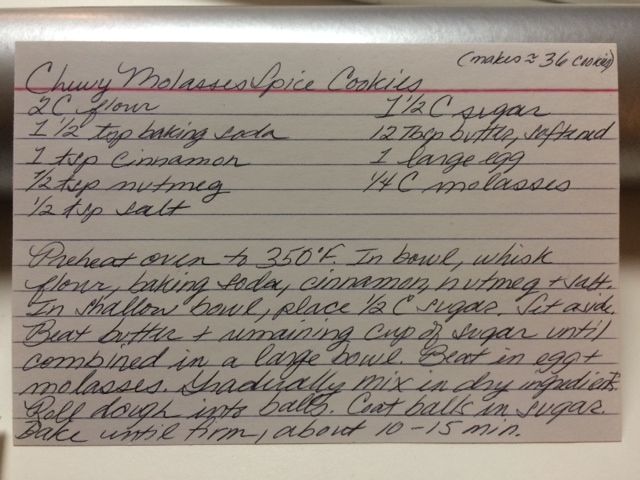 (makes ≈ 36 cookies)
Chewy Molasses Spice Cookies
2 C flour
1 1/2 tsp baking soda
1 tsp cinnamon
1/2 tsp nutmeg
1/2 tsp salt
1 1/2 C sugar
12 Tbsp butter, softened
1 large egg
1/4 C molasses
Preheat oven to 350°F. In bowl, whisk
flour, baking soda, cinnamon, nutmeg + salt.
In shallow bowl, place 1/2 C sugar. Set aside.
Beat butter + remaining cup of sugar until
combined in a large bowl. Beat in egg +
molasses. Gradically mix in dry ingredients.
Roll dough into balls. Coat balls in sugar.
Bake until firm, about 10-15 min.